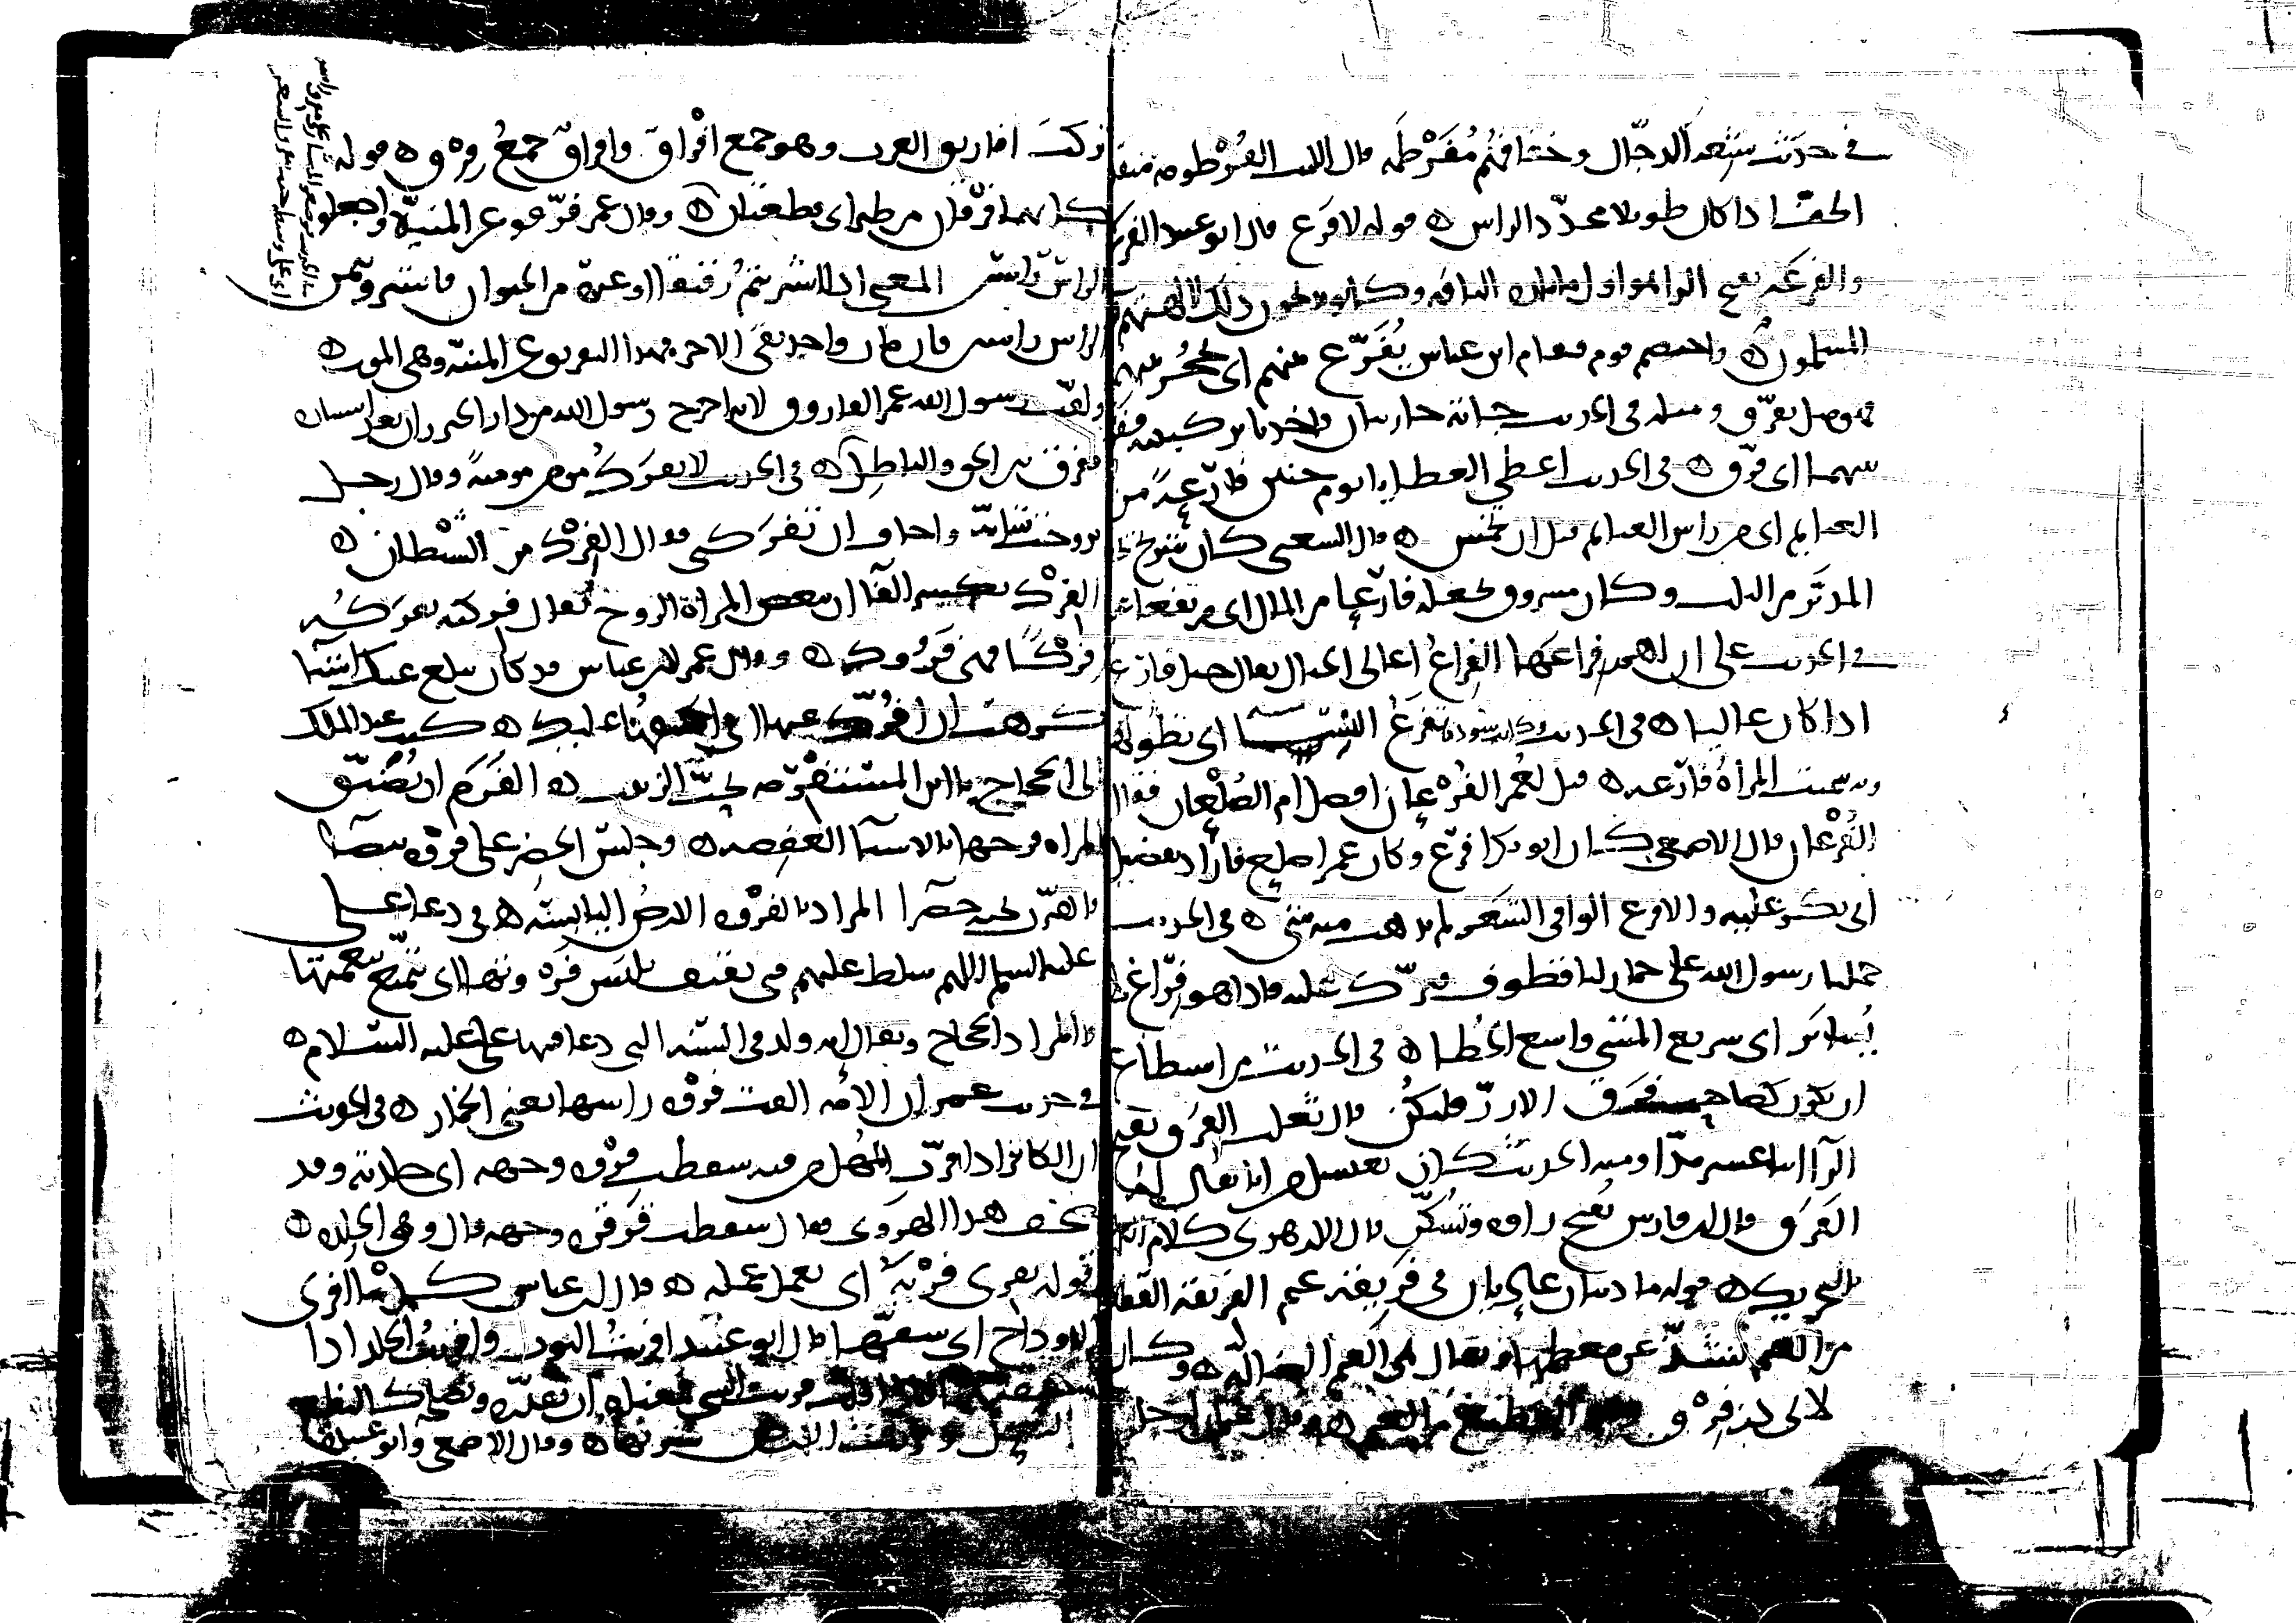 في حديث شيعة الدجال وخفافهم مفرطمة قال الليث الفرطومة منقار
الخف اذا كان طويلا محدد الراس ه قوله لا فرع قال ابو عبيد الفرع
والفرعة بفتح الرا هو اول ما تلده الناقة وكانوا يذبحون ذلك لالهتهم
المسلمون ه واختصم قوم فقام ابن عباس يفرع بينهم اي يحجز بينهم
ويفرق ومثله في الحديث جاءت جاريتان فاخذتا بركبتيه ففرع
بينهما اي فرق ه في الحديث اعطى العطايا يوم حنين فارعة من
الغنايم اي من راس الغنايم قبل ان تخمس ه قال الشعبي كان شريح يجعل
المدبر من الثلث وكان مسروق يجعله فارعا من المال اي مرتفعا
في الحديث على ان لهم فراعها الفراع اعالي الجبال يقال جبل فارع
اذا كان عاليا ه في الحديث وكانت سودة تفرع النسا اي تطولهن
وبه سميت المراة فارعة ه قيل لعمر الفرعان افضل ام الصلعان فقال
الفرعان قال الاصمعي كان ابو بكر افرع وكان عمر اصلع فاراد تفضيل
ابي بكر عليه والافرع الوافي الشعر لم يذهب منه شي ه في الحديث
حملنا رسول الله على حمار لنا قطوف فبرك عليه فاذا هو فراغ لا
يساير اي سريع المشي واسع الخطا ه في الحديث من استطاع
ان يكون كصاحب فرق الارز فليكن قال ثعلب الفرق بفتح
الرا اثنا عشر مدا ومنه الحديث كان يغتسل من انا يقال له
الفرق قال ابن فارس تفتح راوه وتسكن قال الازهري كلام العرب
بالتحريك ه قوله ما ذيبان عاديان في فريقة غنم الفريقة القطعة
من الغنم تشذ عن معظمها ويقال هي الغنم الضالة ه وكان
لابي ذر فرق وهو القطيع من الغنم ه وقال عثمان لرجل
ذكرت افاريق العرب وهو جمع افراق وافراق جمع فرق ه قوله
كانهما فرقان من طير اي قطعتان ه وقال عمر فرقوا عن المنية واجعلوا
الراس راسين المعنى اذا اشتريتم رقيقا او غيره من الحيوان فاشتروا بثمن
الراس راسين فان مات واحد بقي الاخر فهذا التفريق عن المنية وهي الموت ه
ولقب رسول الله عمر الفاروق لانه اخرج رسول الله من دار الخيزران بعد اسلامه
ففرق بين الحق والباطل ه في الحديث لا يفرك مومن مومنة وقال رجل
تزوجت شابة واخاف ان تفركني فقال الفرك من الشيطان ه
الفرك بكسر الفا ان تبغض المراة الزوج يقال فركته تفركه
فركا فهي فروك ه وقال عمر لابن عباس قد كان يبلغني عنك اشيا
كرهت ان افرك عنها ه كتب عبد الملك
الى الحجاج يا ابن المستفرمة بحب الزبيب ه الفرم ان تضيق
المراة فرجها بالاشيا العفصة ه وجلس الخضر على فروة بيضا
فاهتزت تحته خضرا المراد بالفروة الارض اليابسة ه في دعا علي
عليه السلم اللهم سلط عليهم فتى ثقيف يلبس فروتها اي يتمتع بنعمتها
والمراد الحجاج ويقال انه ولد في السنة التي دعا فيها علي عليه السلام ه
في حديث عمر ان الامة القت فروة راسها يعني الخمار ه في الحديث
ان الكافر اذا قرب المهل من فيه سقطت فروة وجهه اي جلدته وقد
صحف هذا الهروي فقال سقطت قرقرة وجهه قال وهي الجلدة ه
قوله يفري فريه اي يعمل عمله ه وقال ابن عباس كل ما افرى
الاوداج اي شقها قال ابو عبيد افريت الثوب وافريت الحلة اذا
شققتها فاذا قلت فريت الشي فمعناه ان تقدره وتصلحه كالنطع
وقال الاصمعي وابو عبيد